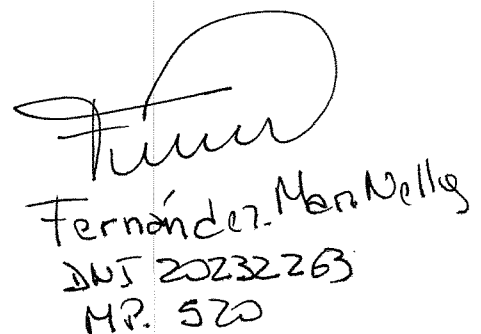 Fernández. Mari Nelly
DNI 20232263
MP. 520